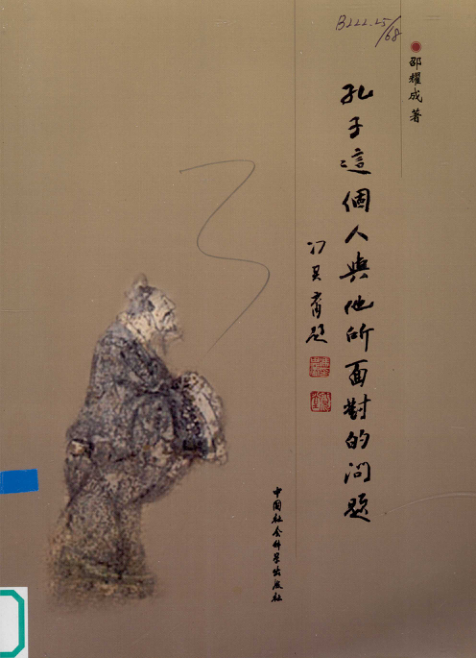 B222.25/68
邵耀成 著
孔子這個人與他所面對的问题
冯其庸题
中国社会科学出版社